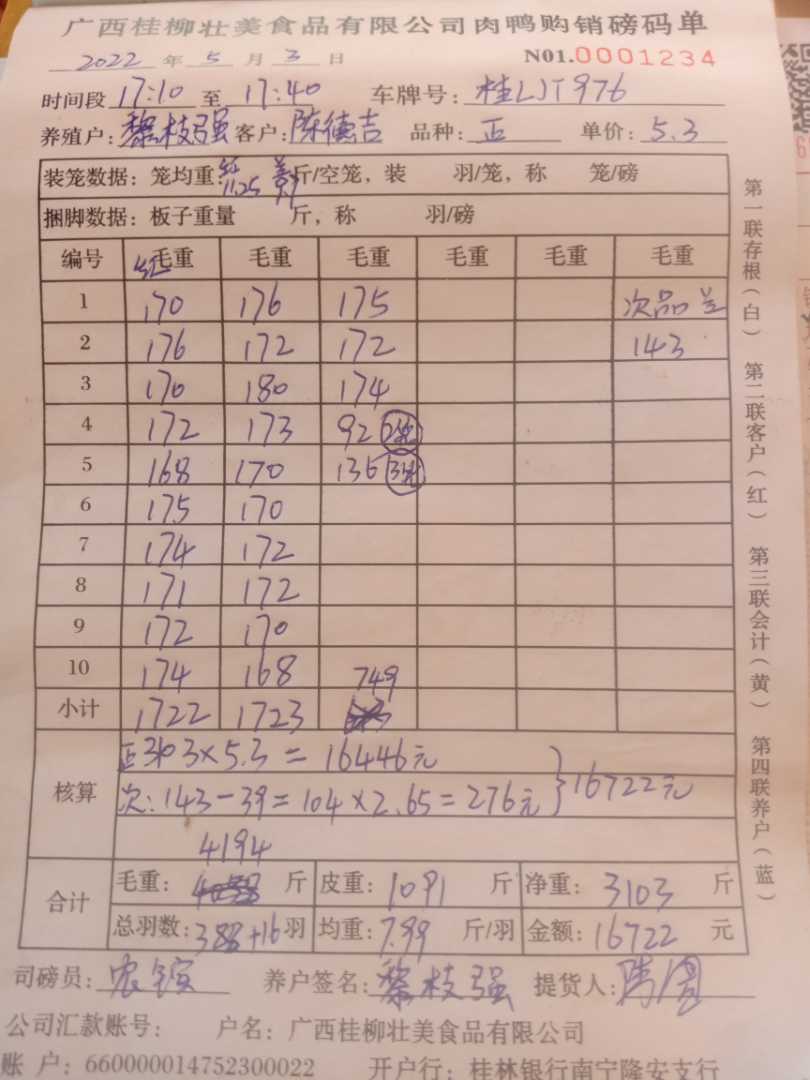 广西桂柳壮美食品有限公司肉鸭购销磅码单
2022 年 5 月 3 日 N01.0001234
时间段 17:10 至 17:40 车牌号: 桂LJT976
养殖户: 黎枝强 客户: 陈德吉 品种: 正 单价: 5.3
装笼数据: 笼均重: 11.25 斤/空笼, 装 羽/笼, 称 笼/磅
捆脚数据: 板子重量 斤, 称 羽/磅
编号 毛重 毛重 毛重 毛重 毛重 毛重
1 170 176 175 次品
2 176 172 172 143
3 170 180 174
4 172 173 92
5 168 170 136
6 175 170
7 174 172
8 171 172
9 172 170
10 174 168 749
小计 1722 1723
核算 正3103×5.3=16446元
次:143-39=104×2.65=276元 }16722元
4194
合计 毛重: 斤 皮重: 1091 斤 净重: 3103 斤
总羽数: 388+16 羽 均重: 7.99 斤/羽 金额: 16722 元
司磅员: 养户签名: 黎枝强 提货人:
公司汇款账号: 户名: 广西桂柳壮美食品有限公司
账 户: 660000014752300022 开户行: 桂林银行南宁隆安支行
第一联存根(白) 第二联客户(红) 第三联会计(黄) 第四联养户(蓝)